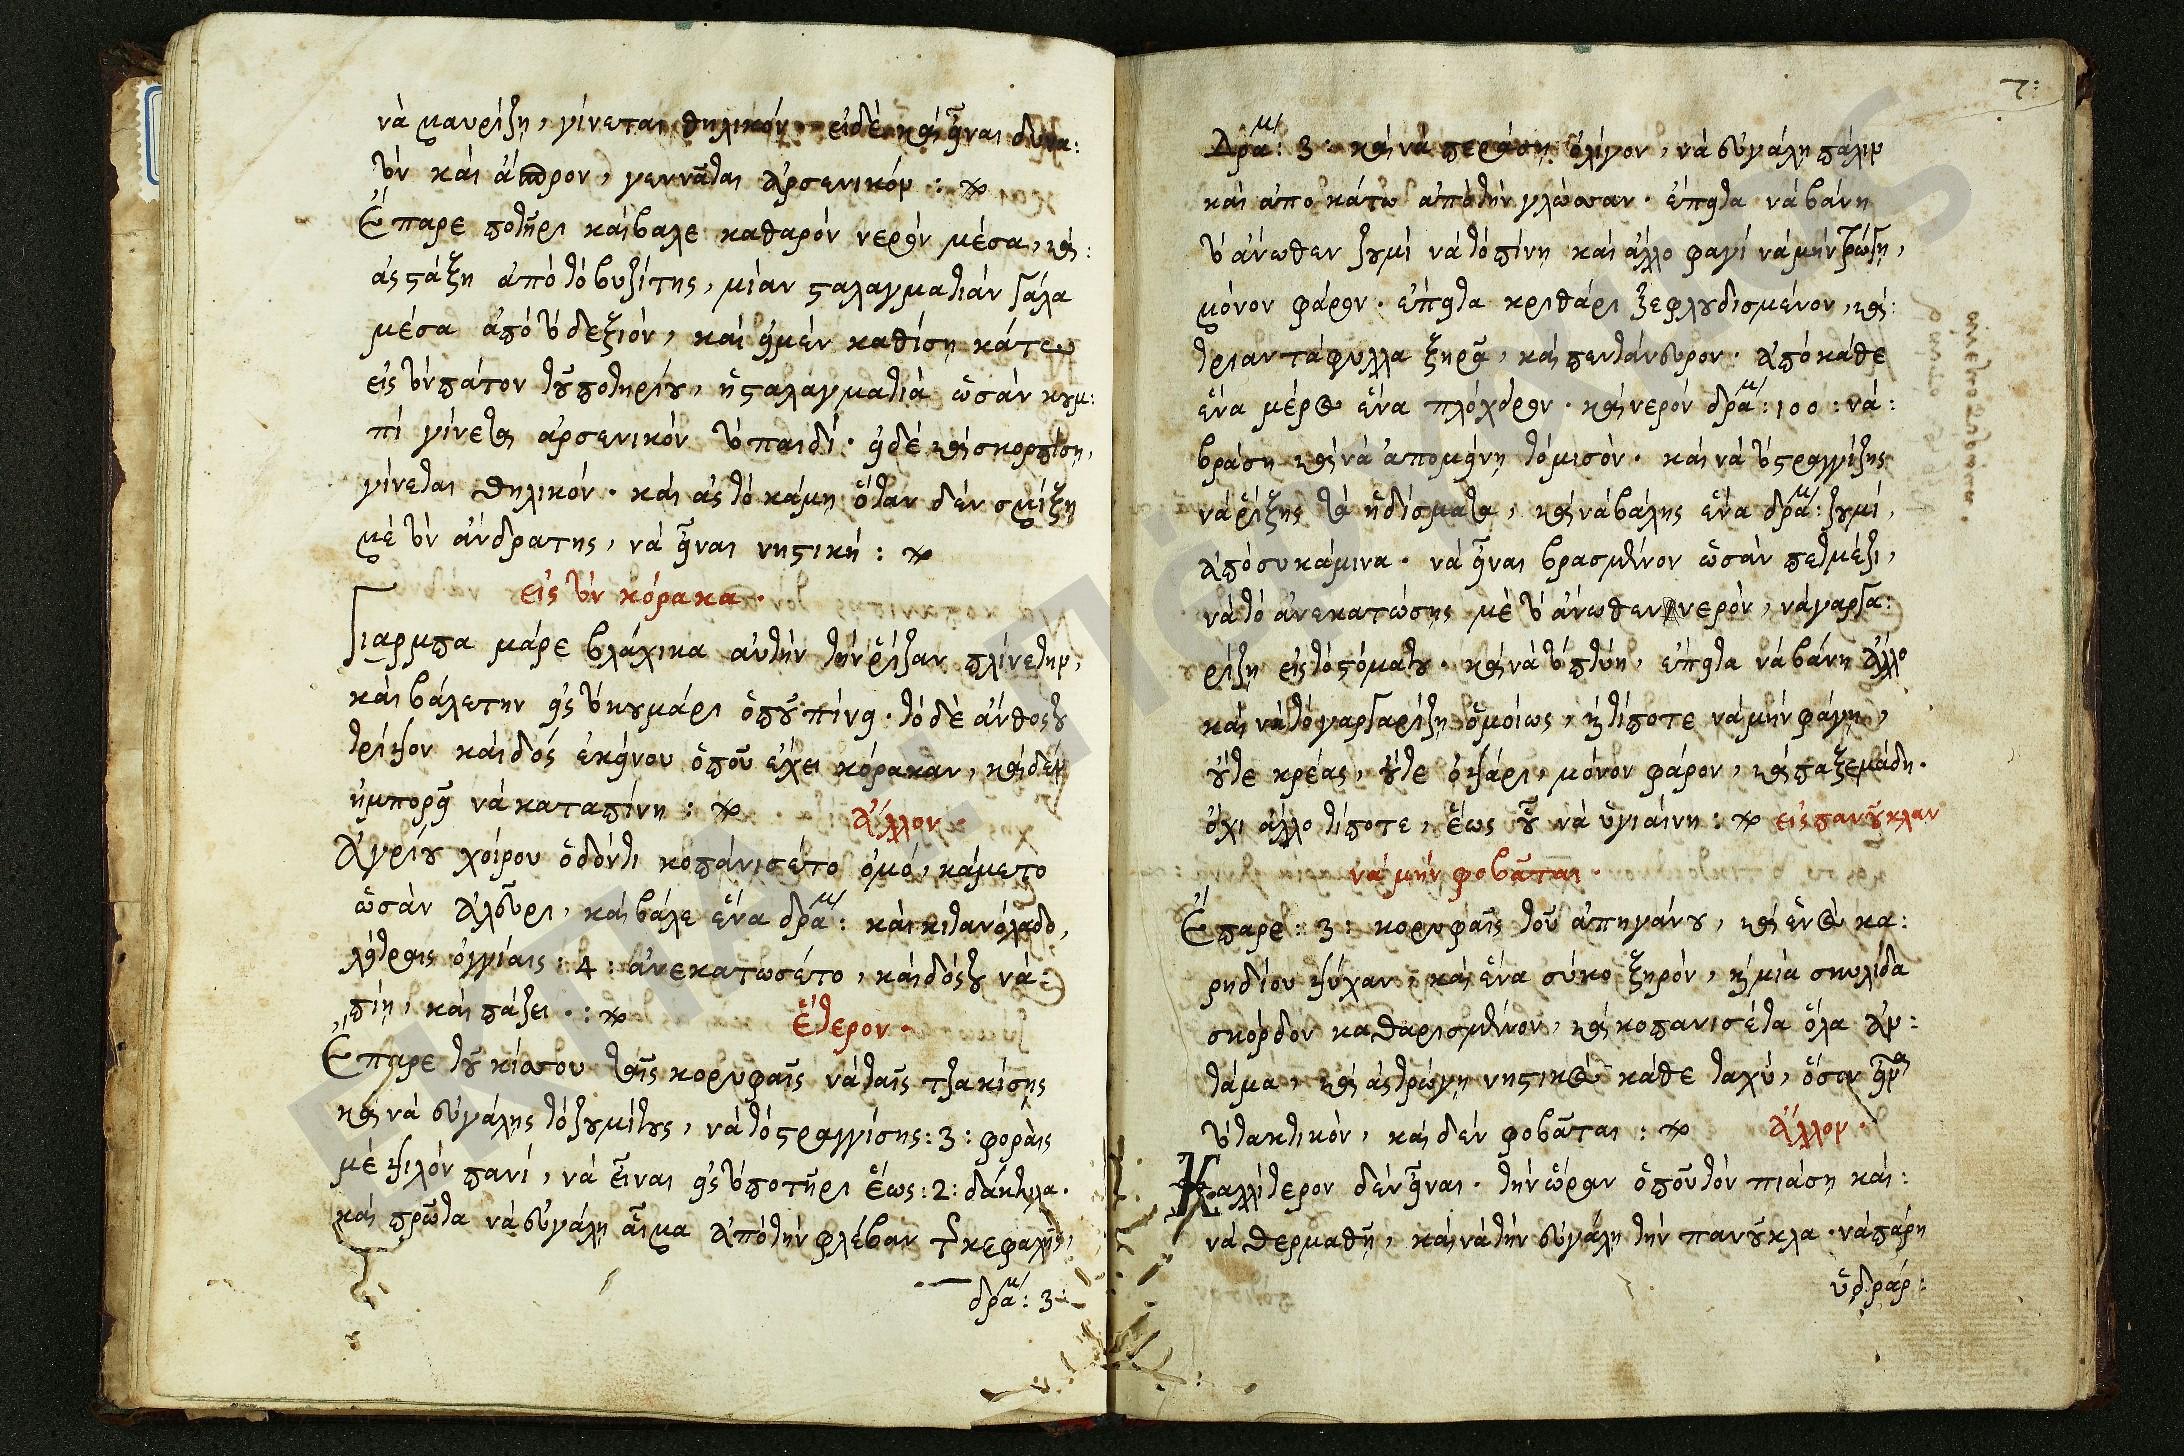 νὰ μαυρίζῃ, γίνεται θηλικόν· εἰδὲ καὶ εἶναι δυνα:
τὸν καὶ ἄσπρον, γεννᾶται ἀρσενικόν :
Ἔπαρε ποτῆρι καὶ βάλε καθαρὸν νερὸν μέσα, καὶ:
ἂς στάξῃ ἀπὸ τὸ βυζίτης, μίαν σταλαγματιὰν γάλα
μέσα ἀπὸ τὸ δεξιόν, καὶ εἰμὲν καθίσῃ κάτω
εἰς τὸν πάτον τοῦ ποτηρίου, ἡ σταλαγματιὰ ὡσὰν κουμ:
πὶ γίνεται ἀρσενικὸν τὸ παιδί· εἰδὲ καὶ σκορπίσῃ,
γίνεται θηλικόν· καὶ ἂς τὸ κάμῃ ὅταν δὲν σμίξῃ
μὲ τὸν ἄνδρατης, νὰ εἶναι νηστική :
εἰς τὸν κόρακα·
Γιάρμπα μάρε βλάχικα αὐτὴν τὴν ῥίζαν πλίνετην,
καὶ βάλετην εἰς τὸ κουμάρι ὁποῦ πίνει· τὸ δὲ ἄνθος του
τρίψον καὶ δός ἐκείνου ὁποῦ ἔχει κόρακαν, καὶ δὲν
ἠμπορεῖ νὰ καταπίνῃ : Ἄλλον·
Ἀγρίου χοίρου ὀδόντι κοπάνισέτο ὠμό, κάμετο
ὡσὰν ἀλεῦρι, καὶ βάλε ἕνα δραμ: καὶ
λίτραις οὐγγίαις : 4 : ἀνεκατωσέτο, καὶ δός του νὰ:
πίῃ, καὶ παύει· : Ἕτερον·
Ἔπαρε τοῦ κίσσου ταῖς κορυφαῖς νὰ ταῖς τζακίσῃς
καὶ νὰ εὐγάλῃς τὸ ζουμίτους, νὰ τὸ στραγγίσῃς : 3 : φοραὶς
μὲ ψιλὸν πανί, νὰ εἶναι εἰς τὸ ποτῆρι ἕως : 2 : δάκτυλα·
καὶ πρῶτα νὰ εὐγάλῃ αἷμα ἀπὸ τὴν φλέβαν τῆς κεφαλῆς,
δραμ : 3 :
7:
Δραμ : 3 : καὶ νὰ περάσῃ ὀλίγον, νὰ εὐγάλῃ πάλιν
καὶ ἀπο κάτω ἀπὸ τὴν γλῶσσαν· ἔπειτα νὰ βάνῃ
τὸ ἄνωθεν ζουμὶ νὰ τὸ πίνῃ καὶ ἄλλο φαγί νὰ μὴν τρώγῃ,
μόνον φάρον· ἔπειτα κριθάρι ξεφλουδισμένον, καὶ:
τριαντάφυλλα ξηρά, καὶ πεντάνευρον· ἀπὸ κάθε
ἕνα μέρος ἕνα πλόχερον· καὶ νερὸν δραμ : 100 : νὰ:
βράσῃ καὶ νὰ ἀπομείνῃ τὸ μισὸν· καὶ νὰ τὸ στραγγίξῃς
νὰ ῥίξῃς τὰ ἡδίσματα, καὶ νὰ βάλῃς ἕνα δραμ : ζουμί,
ἀπὸ συκάμινα· νὰ εἶναι βρασμένον ὡσὰν πετμέζι,
νὰ τὸ ἀνεκατώσῃς μὲ τὸ ἄνωθεν νερὸν, νὰ γαργα:
ρίζῃ εἰς τὸ στόματου· καὶ νὰ τὸ πτύῃ, ἔπειτα νὰ βάνῃ ἄλλο
καὶ νὰ τὸ γαργαρίζῃ ὁμοίως, καὶ τίποτε νὰ μὴν φάγῃ,
οὔτε κρέας, οὔτε ὀψάρι, μόνον φάρον, καὶ παξεμάδη·
ὄχι ἄλλο τίποτε, ἕως οὗ νὰ ὑγιαίνῃ : εἰς πανοῦκλαν
νὰ μὴν φοβᾶται·
Ἔπαρε : 3 : κορυφαῖς τοῦ ἀπηγάνου, καὶ ἑνὸς κα:
ρυδίου ψύχαν, καὶ ἕνα σύκο ξηρόν, καὶ μία σκυλίδα
σκόρδον καθαρισμένον, καὶ κοπανισέτα ὅλα ἀν:
τάμα, καὶ ἂς τρώγῃ νηστικὸς κάθε ταχύ, ὅσον
τὸ τακτικόν, καὶ δὲν φοβᾶται : Ἄλλον·
Καλλίτερον δὲν εἶναι· τὴν ὥραν ὁποῦ τὸν πιάσῃ καὶ:
νὰ θερμαθῇ, καὶ νὰ τὴν εὐγάλῃ τὴν πανοῦκλα· νὰ πάρῃ
ὑδράρ: